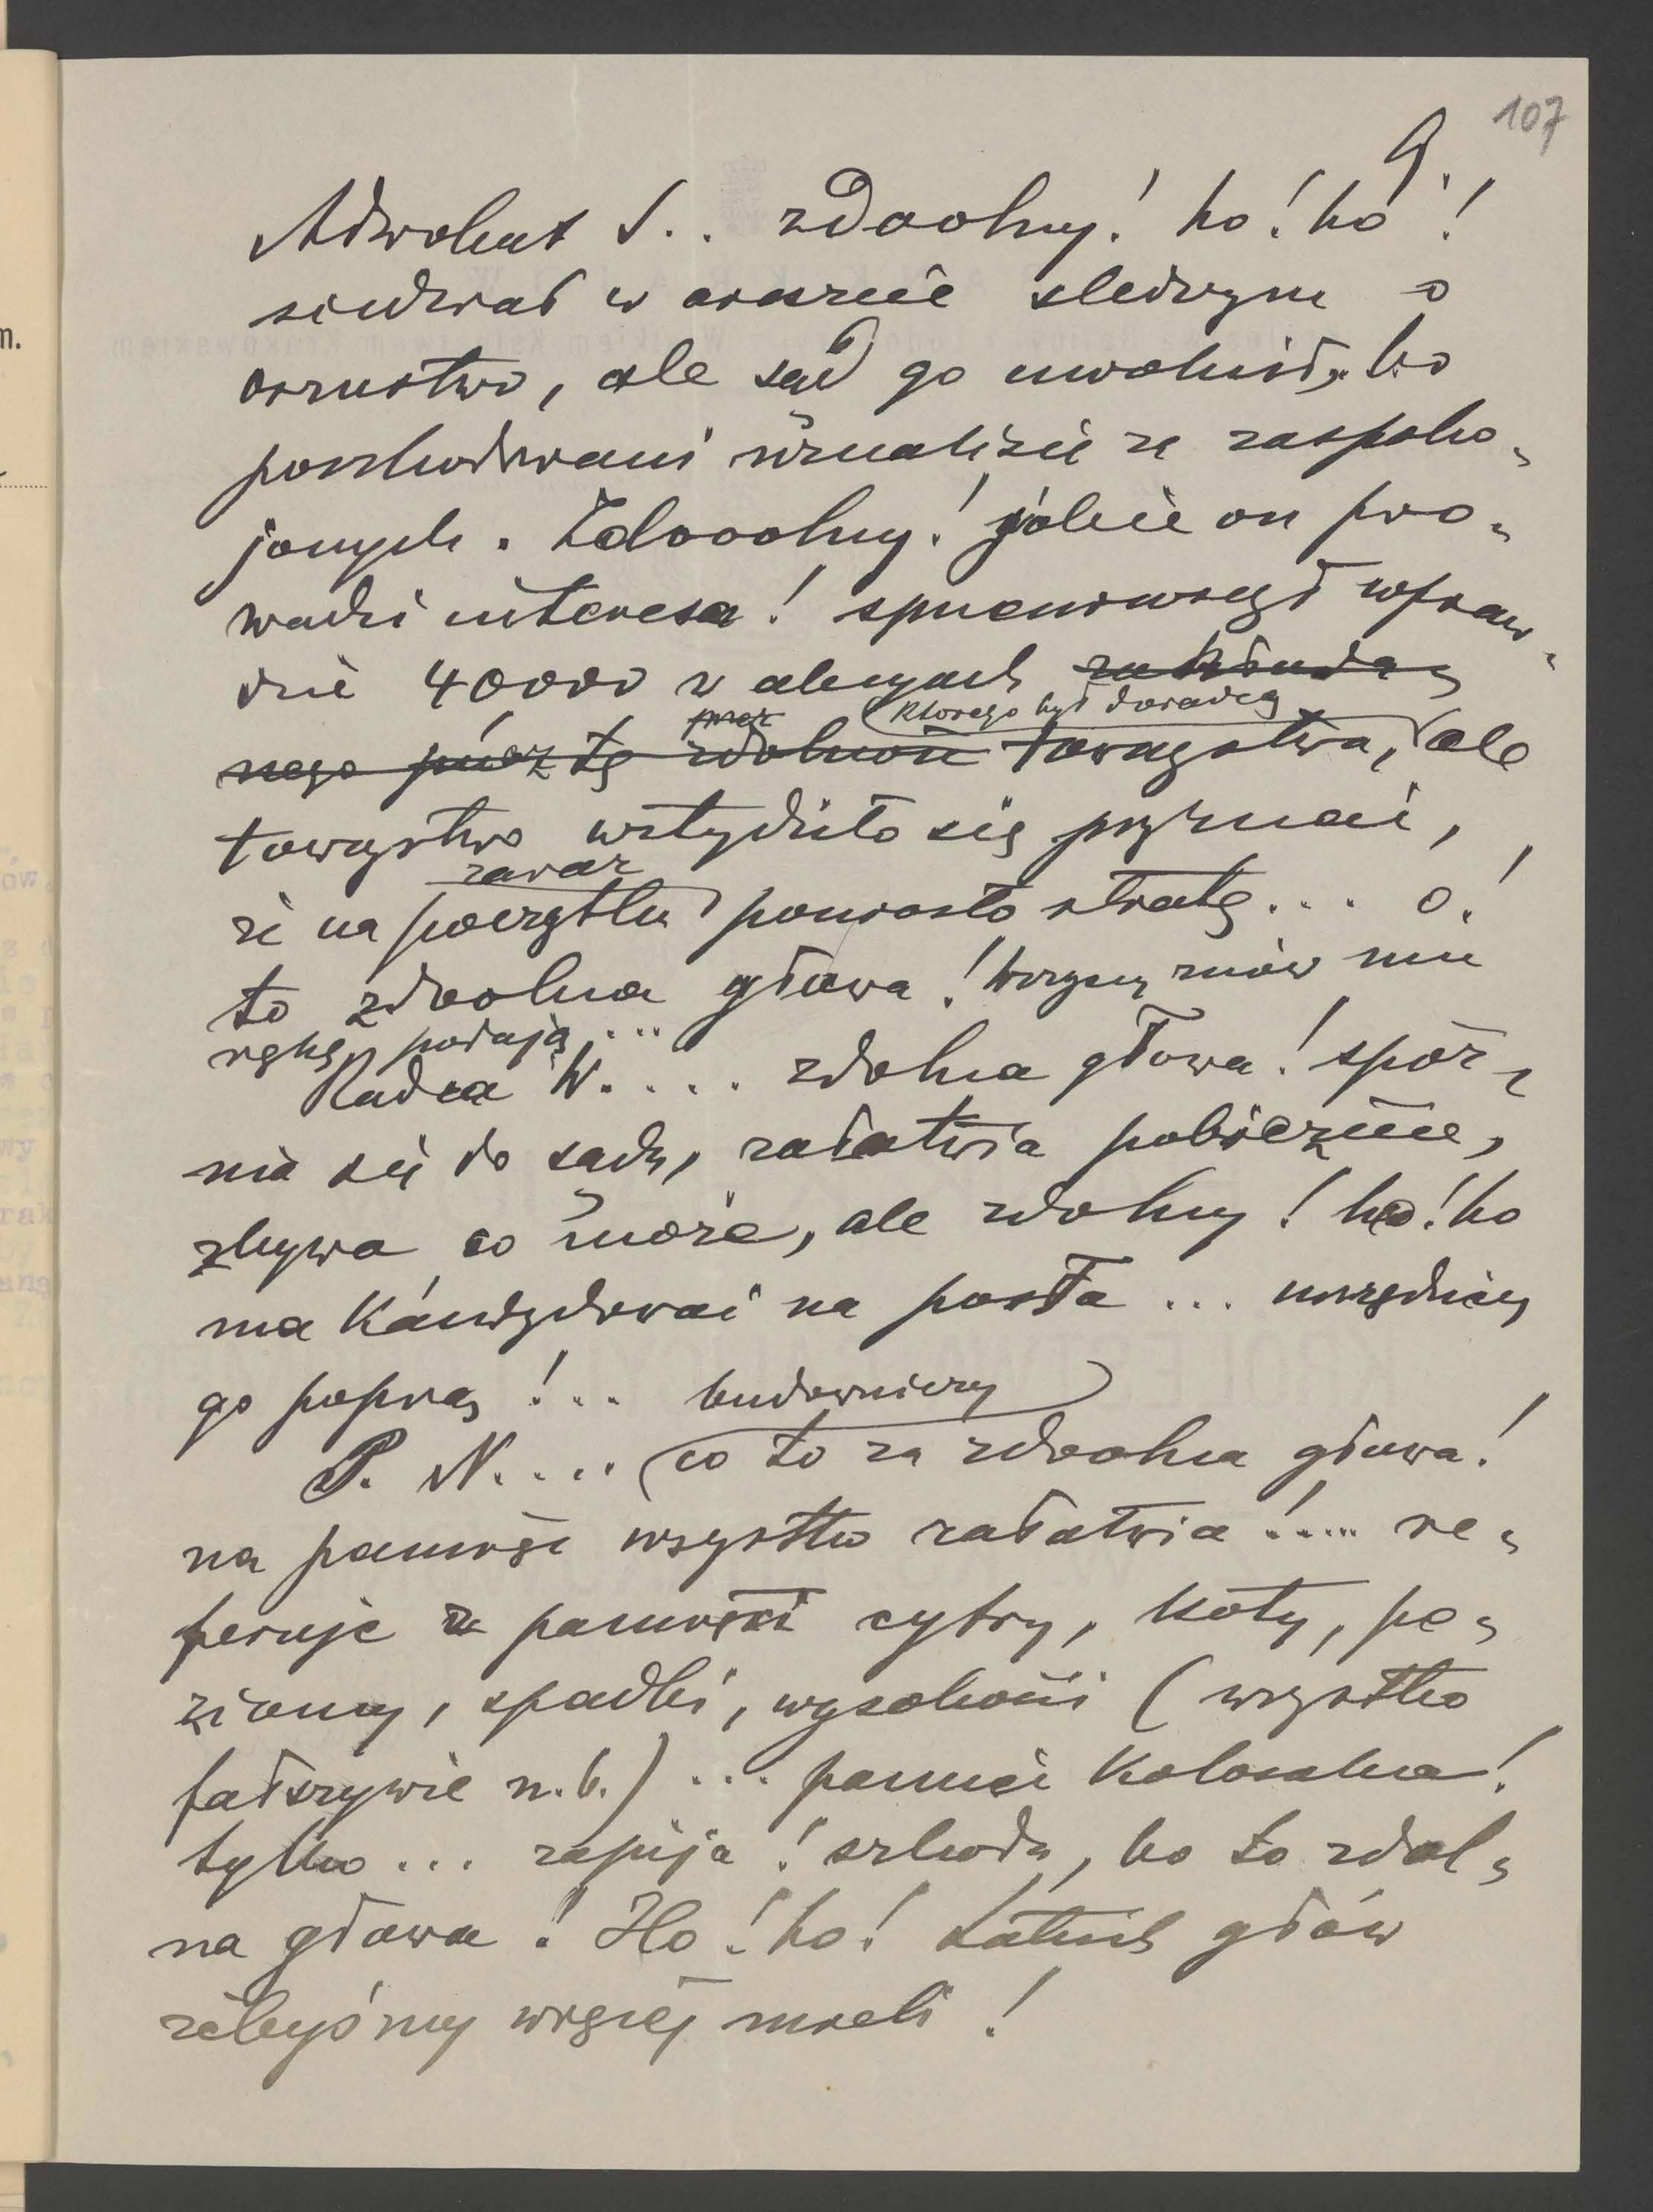 107
9.
Adwokat S.. zdoolny! ho! ho!
siedział w areszcie śledczym o
oszustwo, ale sąd go uwolnił, bo
poszkodowani uznali się za zaspoko-
jonych. Zdooolny! jakie on pro-
wadzi interesa! sprzeniewierzył wpraw-
dzie 40000 w akcyach zakłada-
nego przez tę zdolność towarzystwa, ale
przez
którego był doradcą
towarzystwo wstydziło się przyznać,
zaraz
że na początku poniosło stratę... o!
to zdoolna głowa! Wszyscy znów mu
rękę podają...
Radca W.... zdolna głowa! spóź-
nia się do sądu, załatwia pobieżnie,
zbywa co może, ale zdolny! ho! ho
ma kandydować na posła... urzędnicy
go poprą!... budowniczy
P. N.... co to za zdoolna głowa!
na pamięć wszystko załatwia!..... re-
feruje z pamięci cyfry, koty, po-
ziomy, spadki, wysokości (wszystko
fałszywie n.b.)... pamięć kolosalna!
tylko... zapija! szkoda, bo to zdol-
na głowa! Ho! ho! takich głów
żebyśmy więcej mieli!